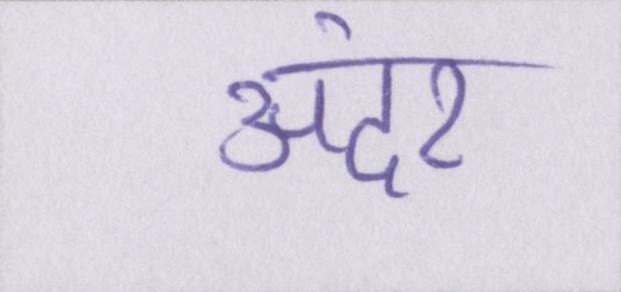 अंदर